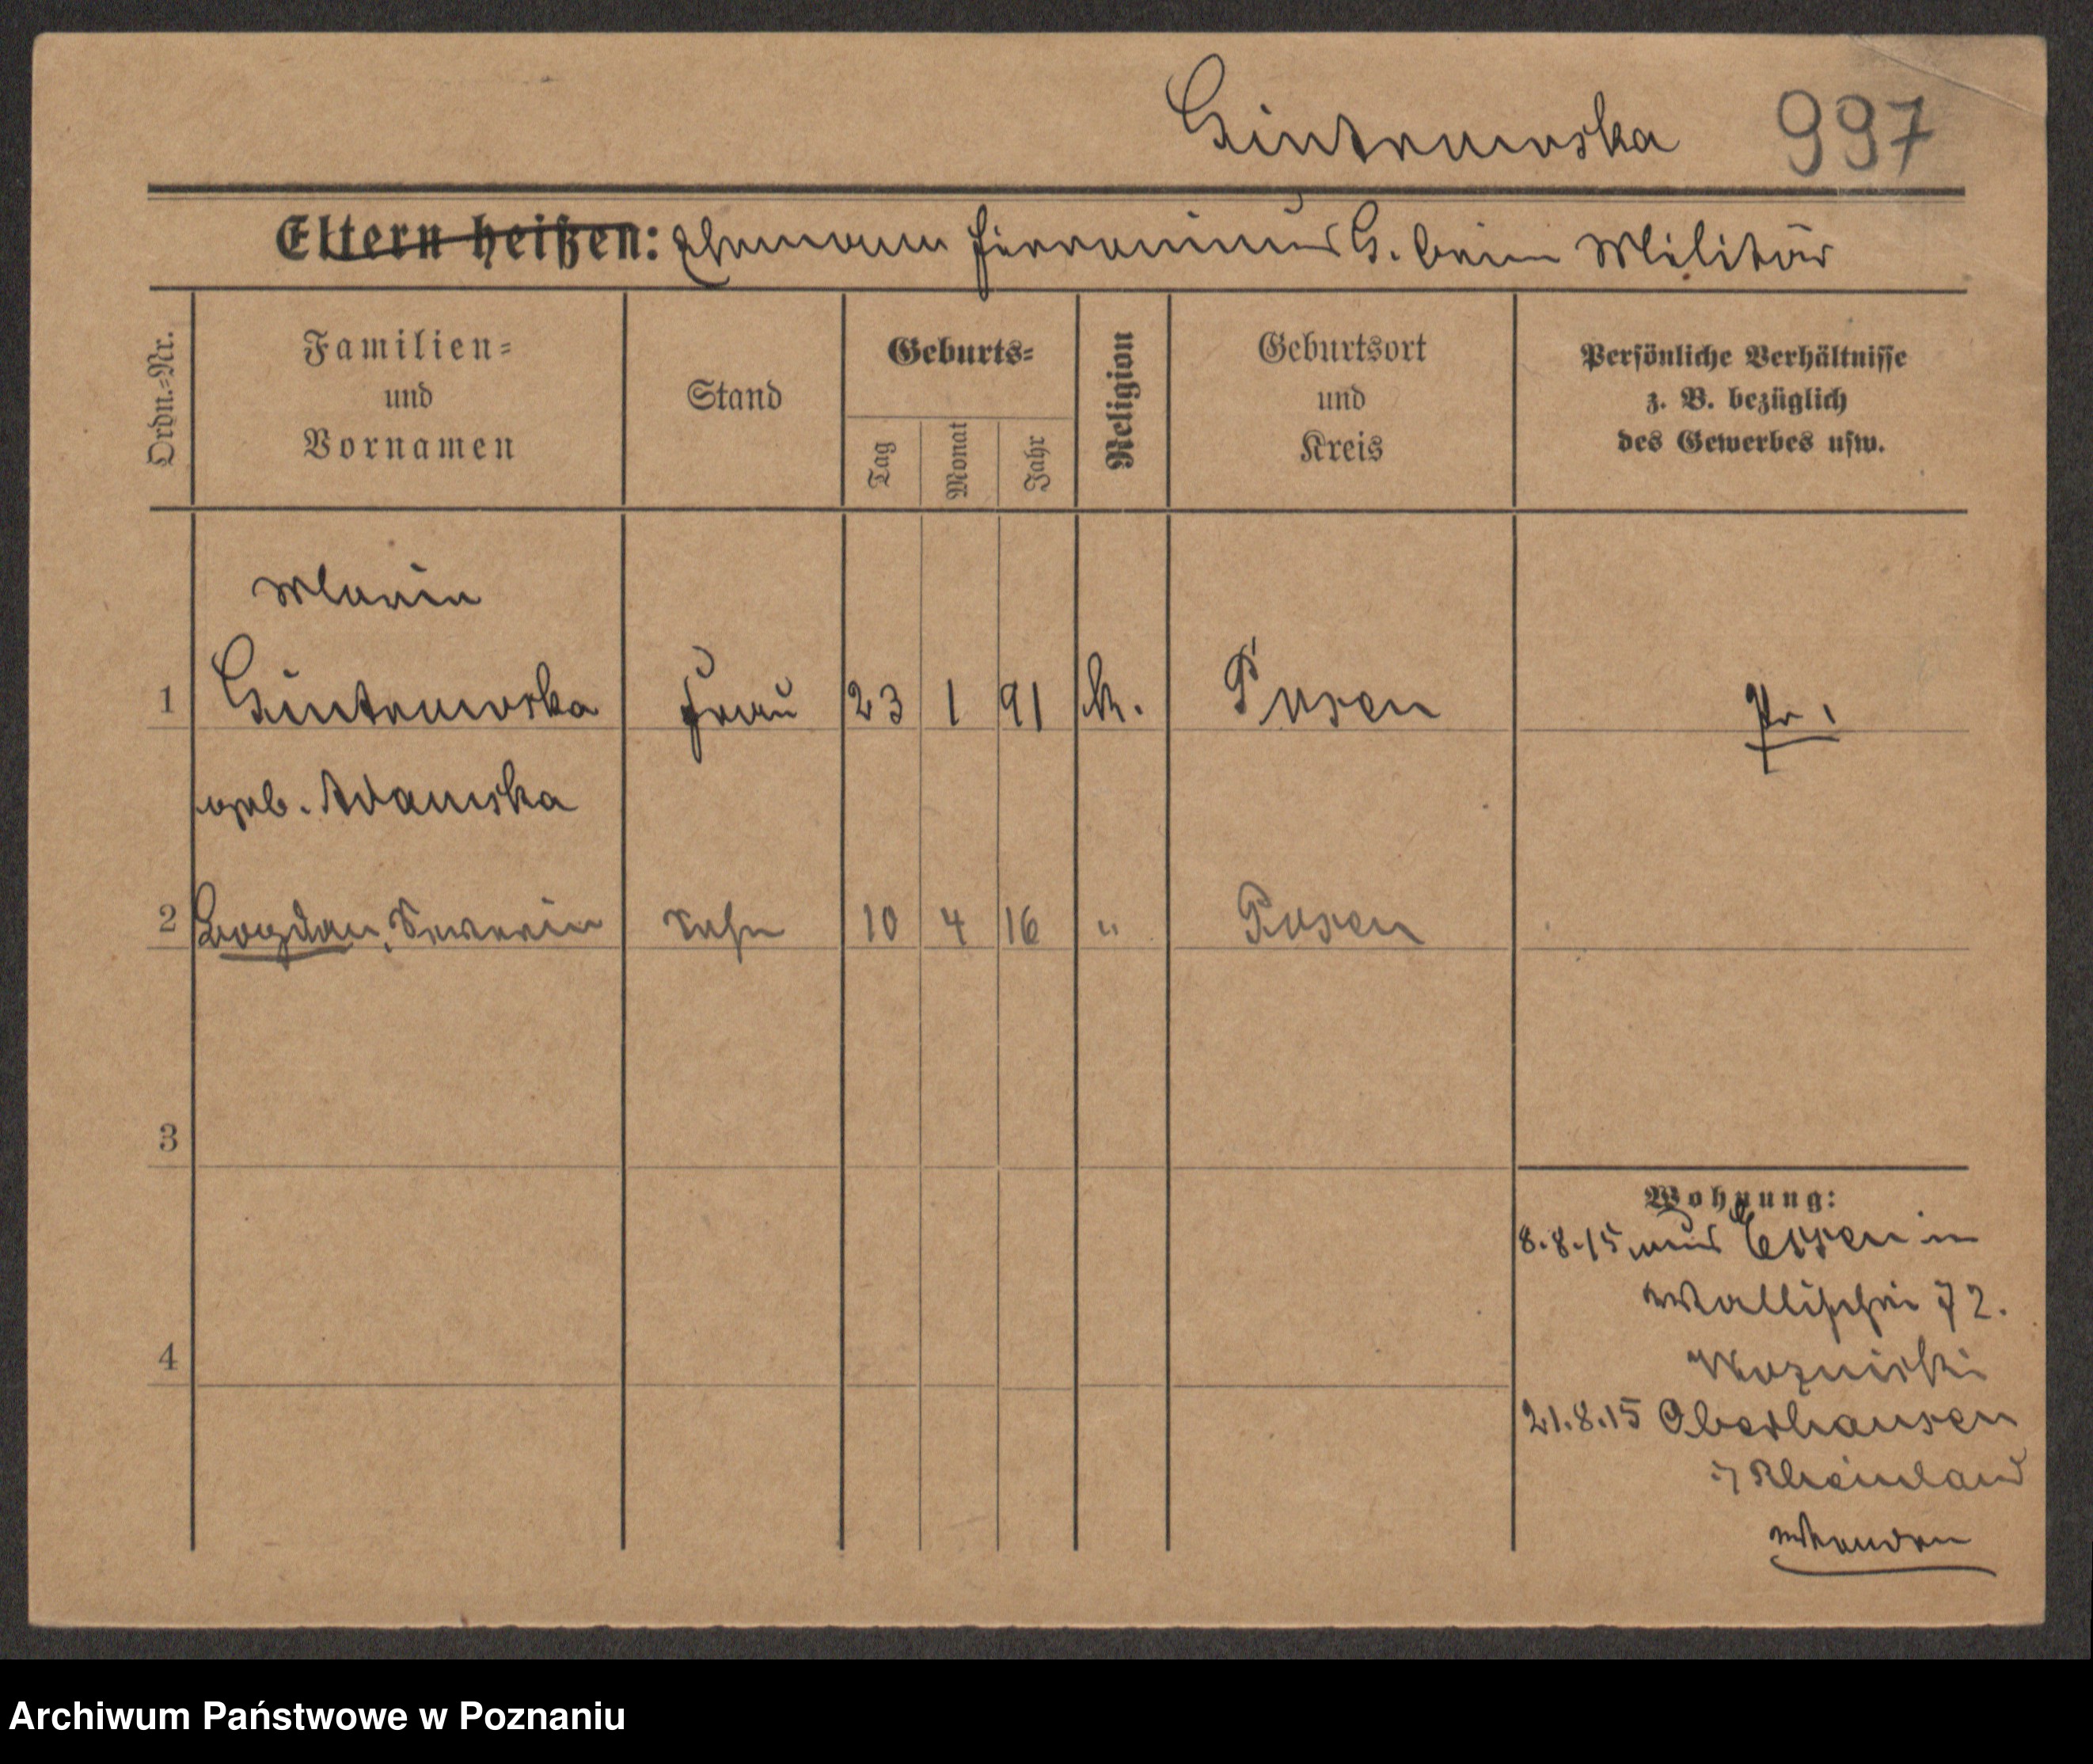 Gintrowska 997
Eltern heißen: Ehemann Hieronimus G. beim Militär
Ordn.-Nr.
Familien= und Vornamen
Stand
Geburts=
Tag
Monat
Jahr
Religion
Geburtsort und Kreis
Persönliche Verhältnisse
z. B. bezüglich
des Gewerbes usw.
Maria
1 Gintrowska Frau 23 1 91 k. Posen Pr.
geb. Adamska
2 Bogdan, Severin Sohn 10 4 16 " Posen
3
4
Wohnung:
8.8.15 aus Essen in
Wallischei 72.
21.8.15 Oberhausen
Rheinland
Archiwum Państwowe w Poznaniu